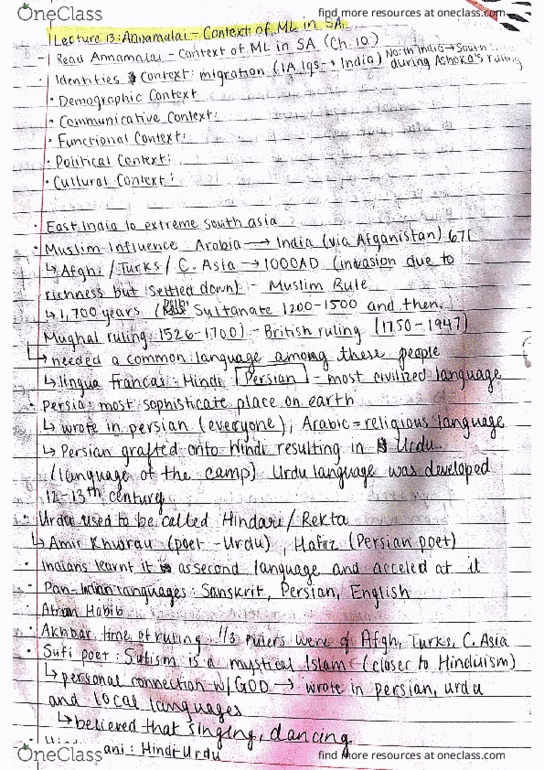 OneClass
find more resources at oneclass.com
Lecture 13: Annamalai - Context of ML in SA
- Read Annamalai - Context of ML in SA (Ch. 10)
North India → South
· Identities & Context: migration (IA lgs → India) during Ashoka's ruling
· Demographic Context
· Communicative Context:
· Functional Context:
· Political Context:
· Cultural Context:
· East India to extreme south asia
· Muslim Influence Arabia → India (via Afganistan) 671
↳ Afghi / Turks / C. Asia → 1000AD (invasion due to
richness but settled down) - Muslim Rule
↳ 1,700 years ( Sultanate 1200-1500 and then
Mughal ruling: 1526-1700) - British ruling (1750-1947)
↳ needed a common language among these people
↳ lingua francas: Hindi, Persian - most civilized language
· Persia: most sophisticate place on earth
↳ wrote in persian (everyone), Arabic = religious language
↳ Persian grafted onto Hindi resulting in Urdu
(language of the camp) Urdu language was developed
12-13th century
· Urdu used to be called Hindavi / Rekta
↳ Amir Khusrau (poet - Urdu), Hafiz (Persian poet)
· Indians learnt it as a second language and acceled at it
· Pan-Indian languages: Sanskrit, Persian, English
· Habib
· Akhbar time of ruling 1/3 rulers were of Afgh, Turks, C. Asia
· Sufi poet: Sufism is a mystical Islam (closer to Hinduism)
↳ personal connection w/ GOD → wrote in persian, urdu
and local languages
↳ believed that singing, dancing
ani: Hindi Urdu
OneClass
find more resources at oneclass.com